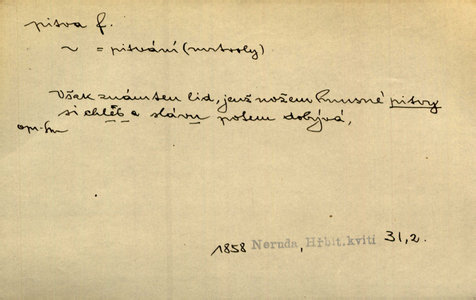 pitva f.
~ = pitvání (mrtvoly)
Však znám ten lid, jenž nožem hnusné pitvy
si chléb a slávu potem dobývá,
1858 Neruda, Hřbit.kvítí 31,2.